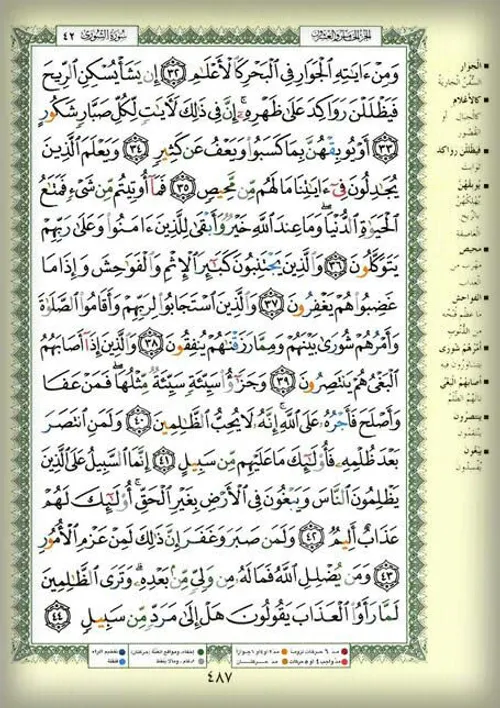 الجزء الخامس والعشرون
سورة الشورى ٤٢
وَمِنْ ءَايَٰتِهِ ٱلْجَوَارِ فِى ٱلْبَحْرِ كَٱلْأَعْلَٰمِ ٣٢ إِن يَشَأْ يُسْكِنِ ٱلرِّيحَ
فَيَظْلَلْنَ رَوَاكِدَ عَلَىٰ ظَهْرِهِۦٓ إِنَّ فِى ذَٰلِكَ لَءَايَٰتٍ لِّكُلِّ صَبَّارٍ شَكُورٍ
٣٣ أَوْ يُوبِقْهُنَّ بِمَا كَسَبُوا۟ وَيَعْفُ عَن كَثِيرٍ ٣٤ وَيَعْلَمَ ٱلَّذِينَ
يُجَٰدِلُونَ فِىٓ ءَايَٰتِنَا مَا لَهُم مِّن مَّحِيصٍ ٣٥ فَمَآ أُوتِيتُم مِّن شَىْءٍ فَمَتَٰعُ
ٱلْحَيَوٰةِ ٱلدُّنْيَا وَمَا عِندَ ٱللَّهِ خَيْرٌ وَأَبْقَىٰ لِلَّذِينَ ءَامَنُوا۟ وَعَلَىٰ رَبِّهِمْ
يَتَوَكَّلُونَ ٣٦ وَٱلَّذِينَ يَجْتَنِبُونَ كَبَٰٓئِرَ ٱلْإِثْمِ وَٱلْفَوَٰحِشَ وَإِذَا مَا
غَضِبُوا۟ هُمْ يَغْفِرُونَ ٣٧ وَٱلَّذِينَ ٱسْتَجَابُوا۟ لِرَبِّهِمْ وَأَقَامُوا۟ ٱلصَّلَوٰةَ
وَأَمْرُهُمْ شُورَىٰ بَيْنَهُمْ وَمِمَّا رَزَقْنَٰهُمْ يُنفِقُونَ ٣٨ وَٱلَّذِينَ إِذَآ أَصَابَهُمُ
ٱلْبَغْىُ هُمْ يَنتَصِرُونَ ٣٩ وَجَزَٰٓؤُا۟ سَيِّئَةٍ سَيِّئَةٌ مِّثْلُهَا فَمَنْ عَفَا
وَأَصْلَحَ فَأَجْرُهُۥ عَلَى ٱللَّهِ إِنَّهُۥ لَا يُحِبُّ ٱلظَّٰلِمِينَ ٤٠ وَلَمَنِ ٱنتَصَرَ
بَعْدَ ظُلْمِهِۦ فَأُو۟لَٰٓئِكَ مَا عَلَيْهِم مِّن سَبِيلٍ ٤١ إِنَّمَا ٱلسَّبِيلُ عَلَى ٱلَّذِينَ
يَظْلِمُونَ ٱلنَّاسَ وَيَبْغُونَ فِى ٱلْأَرْضِ بِغَيْرِ ٱلْحَقِّ أُو۟لَٰٓئِكَ لَهُمْ
عَذَابٌ أَلِيمٌ ٤٢ وَلَمَن صَبَرَ وَغَفَرَ إِنَّ ذَٰلِكَ لَمِنْ عَزْمِ ٱلْأُمُورِ
٤٣ وَمَن يُضْلِلِ ٱللَّهُ فَمَا لَهُۥ مِن وَلِىٍّ مِّنۢ بَعْدِهِۦ وَتَرَى ٱلظَّٰلِمِينَ
لَمَّا رَأَوُا۟ ٱلْعَذَابَ يَقُولُونَ هَلْ إِلَىٰ مَرَدٍّ مِّن سَبِيلٍ ٤٤
الجوار
السفن الجارية
كالأعلام
كالجبال أو
القصور
فيظللن رواكد
ثوابت
يوبقهن
يهلكهن
بالريح
العاصفة
محيص
مهرب من
العذاب
الفواحش
ما عظم قبحه
من الذنوب
أمرهم شورى
يتشاورون فيه
أصابهم البغي
نالهم الظلم
ينتصرون
ينتقمون
يبغون
يفسدون
مد ٦ حركات لزوما
مد ٢ أو ٤ أو ٦ جوازا
إخفاء، ومواقع الغنة (حركتان)
تفخيم الراء
مد واجب ٤ أو ٥ حركات
مد حركتان
ادغام، وما لا يلفظ
قلقلة
٤٨٧